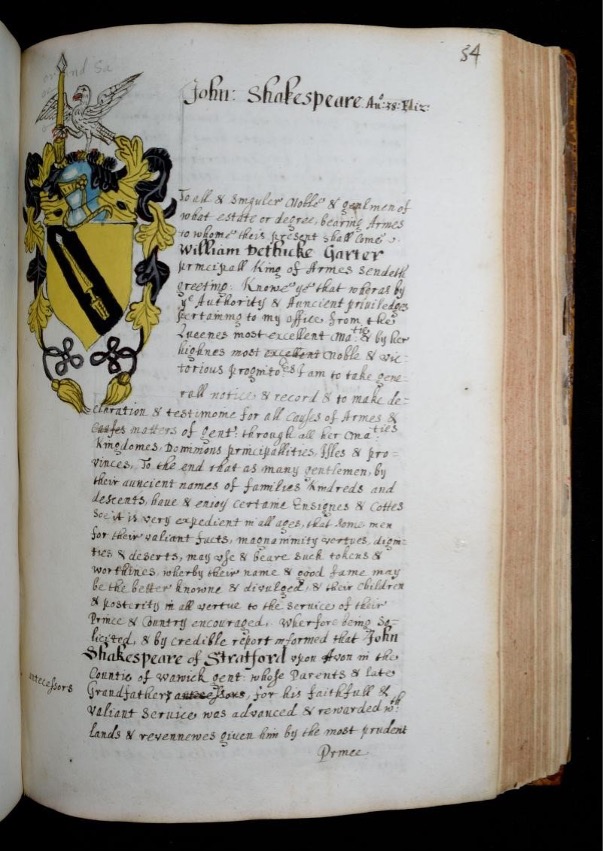 54
John: Shakespeare. Ao: 38: Eliz:
To all & Singuler Noble & gentlmen of
what estate or degree, bearing Armes
to whome theis present shall Come
William Dethicke Garter
principall King of Armes Sendeth
greeting: Knowe ye that wheras by
ye Authority & Auncient priviledges
pertaining to my office from the
Queenes most excellent Ma:tie & by her
highnes most excellent Noble & vic-
torious progenito:rs I am to take gene-
rall notice, & record & to make de-
claration & testimonie for all Causes of Armes &
Causes matters of gent: through all her Ma:ties
Kingdomes, Dominions principallities, Isles & pro-
vinces, To the end that as many gentlemen, by
their auncient names of families Kindreds and
descents, have & enioy certaine Ensignes & Cottes
Soe it is very expedient in all ages, that some men
for their valiant facts, magnanimity vertues, digni-
ties & deserts, may vse & beare such tokens &
worthines, wherby their name & good fame may
be the better knowne & divulged, & their children
& posterity in all vertue to the Service of their
Prince & Country encouraged. Wherfore being So-
licited, & by credible report informed that John
Shakespeare of Stratford vpon Avon in the
Countie of Warwick gent: whose Parents & late
antecessors
Grandfather antecessors, for his faithfull &
valiant Service was advanced & rewarded wth
lands & revennewes given him by the most prudent
Prince